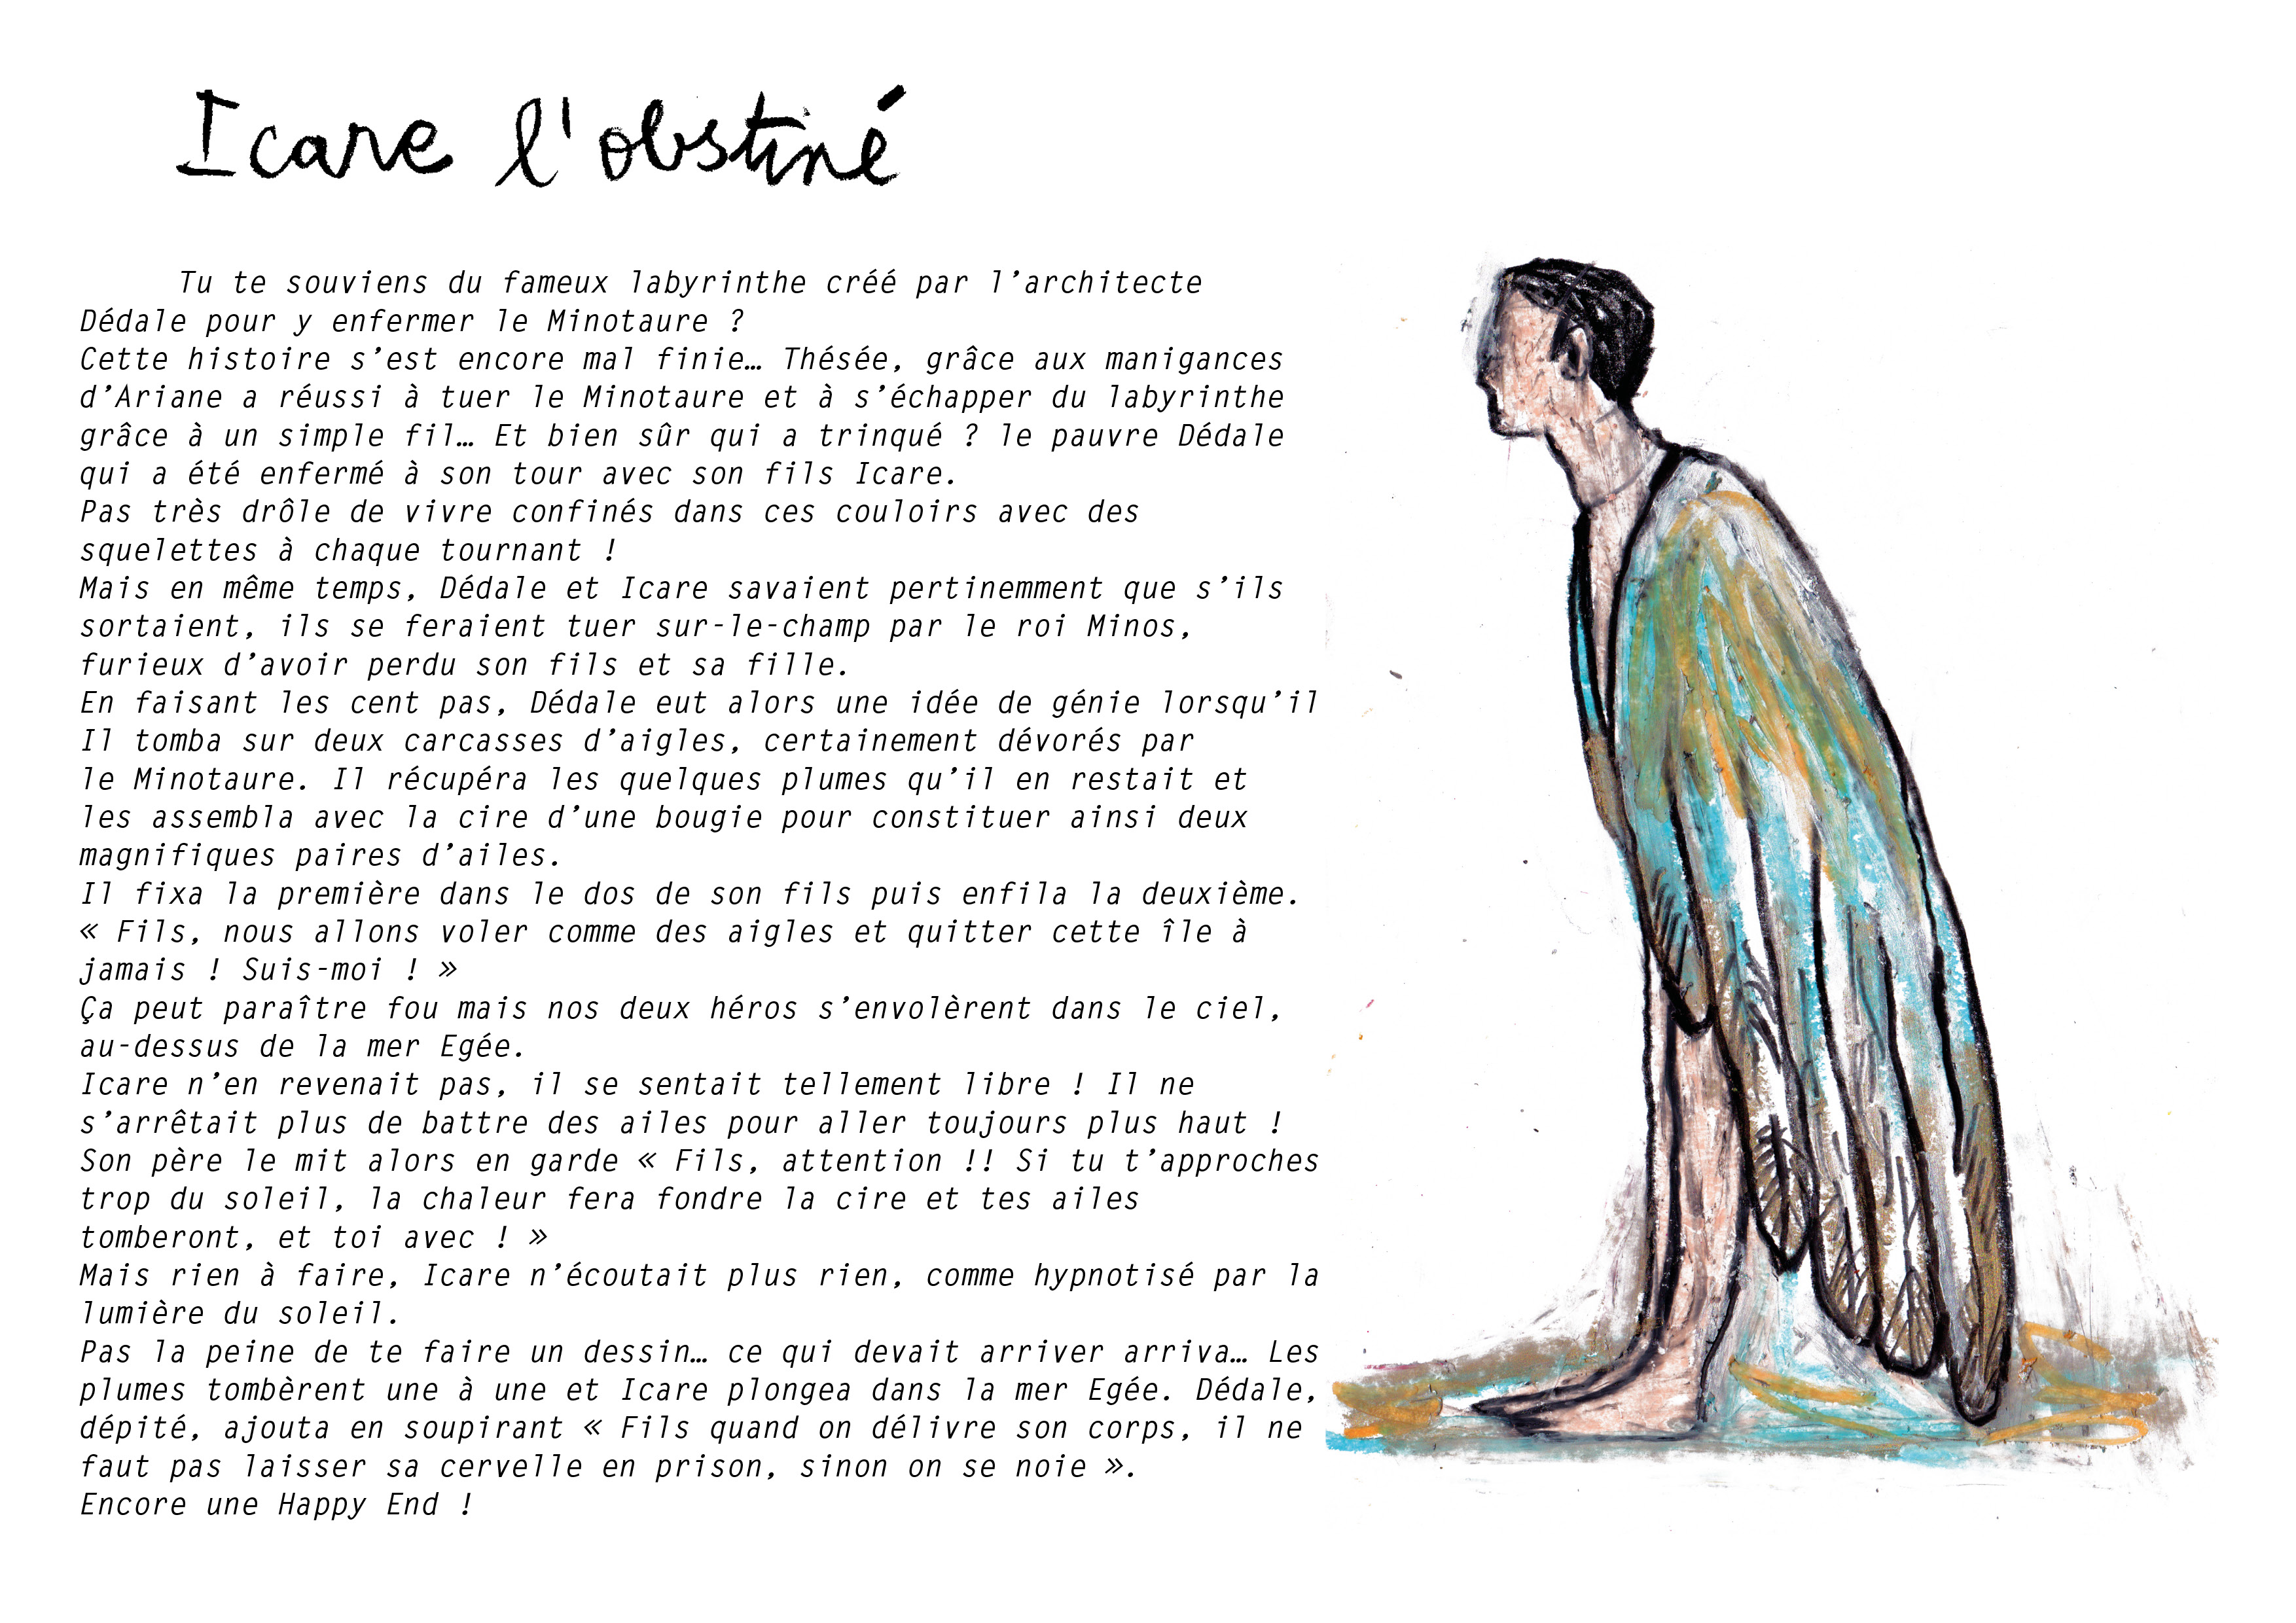 Icare l'obstiné
Tu te souviens du fameux labyrinthe créé par l’architecte
Dédale pour y enfermer le Minotaure ?
Cette histoire s’est encore mal finie… Thésée, grâce aux manigances
d’Ariane a réussi à tuer le Minotaure et à s’échapper du labyrinthe
grâce à un simple fil… Et bien sûr qui a trinqué ? le pauvre Dédale
qui a été enfermé à son tour avec son fils Icare.
Pas très drôle de vivre confinés dans ces couloirs avec des
squelettes à chaque tournant !
Mais en même temps, Dédale et Icare savaient pertinemment que s’ils
sortaient, ils se feraient tuer sur-le-champ par le roi Minos,
furieux d’avoir perdu son fils et sa fille.
En faisant les cent pas, Dédale eut alors une idée de génie lorsqu’il
Il tomba sur deux carcasses d’aigles, certainement dévorés par
le Minotaure. Il récupéra les quelques plumes qu’il en restait et
les assembla avec la cire d’une bougie pour constituer ainsi deux
magnifiques paires d’ailes.
Il fixa la première dans le dos de son fils puis enfila la deuxième.
« Fils, nous allons voler comme des aigles et quitter cette île à
jamais ! Suis-moi ! »
Ça peut paraître fou mais nos deux héros s’envolèrent dans le ciel,
au-dessus de la mer Egée.
Icare n’en revenait pas, il se sentait tellement libre ! Il ne
s’arrêtait plus de battre des ailes pour aller toujours plus haut !
Son père le mit alors en garde « Fils, attention !! Si tu t’approches
trop du soleil, la chaleur fera fondre la cire et tes ailes
tomberont, et toi avec ! »
Mais rien à faire, Icare n’écoutait plus rien, comme hypnotisé par la
lumière du soleil.
Pas la peine de te faire un dessin… ce qui devait arriver arriva… Les
plumes tombèrent une à une et Icare plongea dans la mer Egée. Dédale,
dépité, ajouta en soupirant « Fils quand on délivre son corps, il ne
faut pas laisser sa cervelle en prison, sinon on se noie ».
Encore une Happy End !